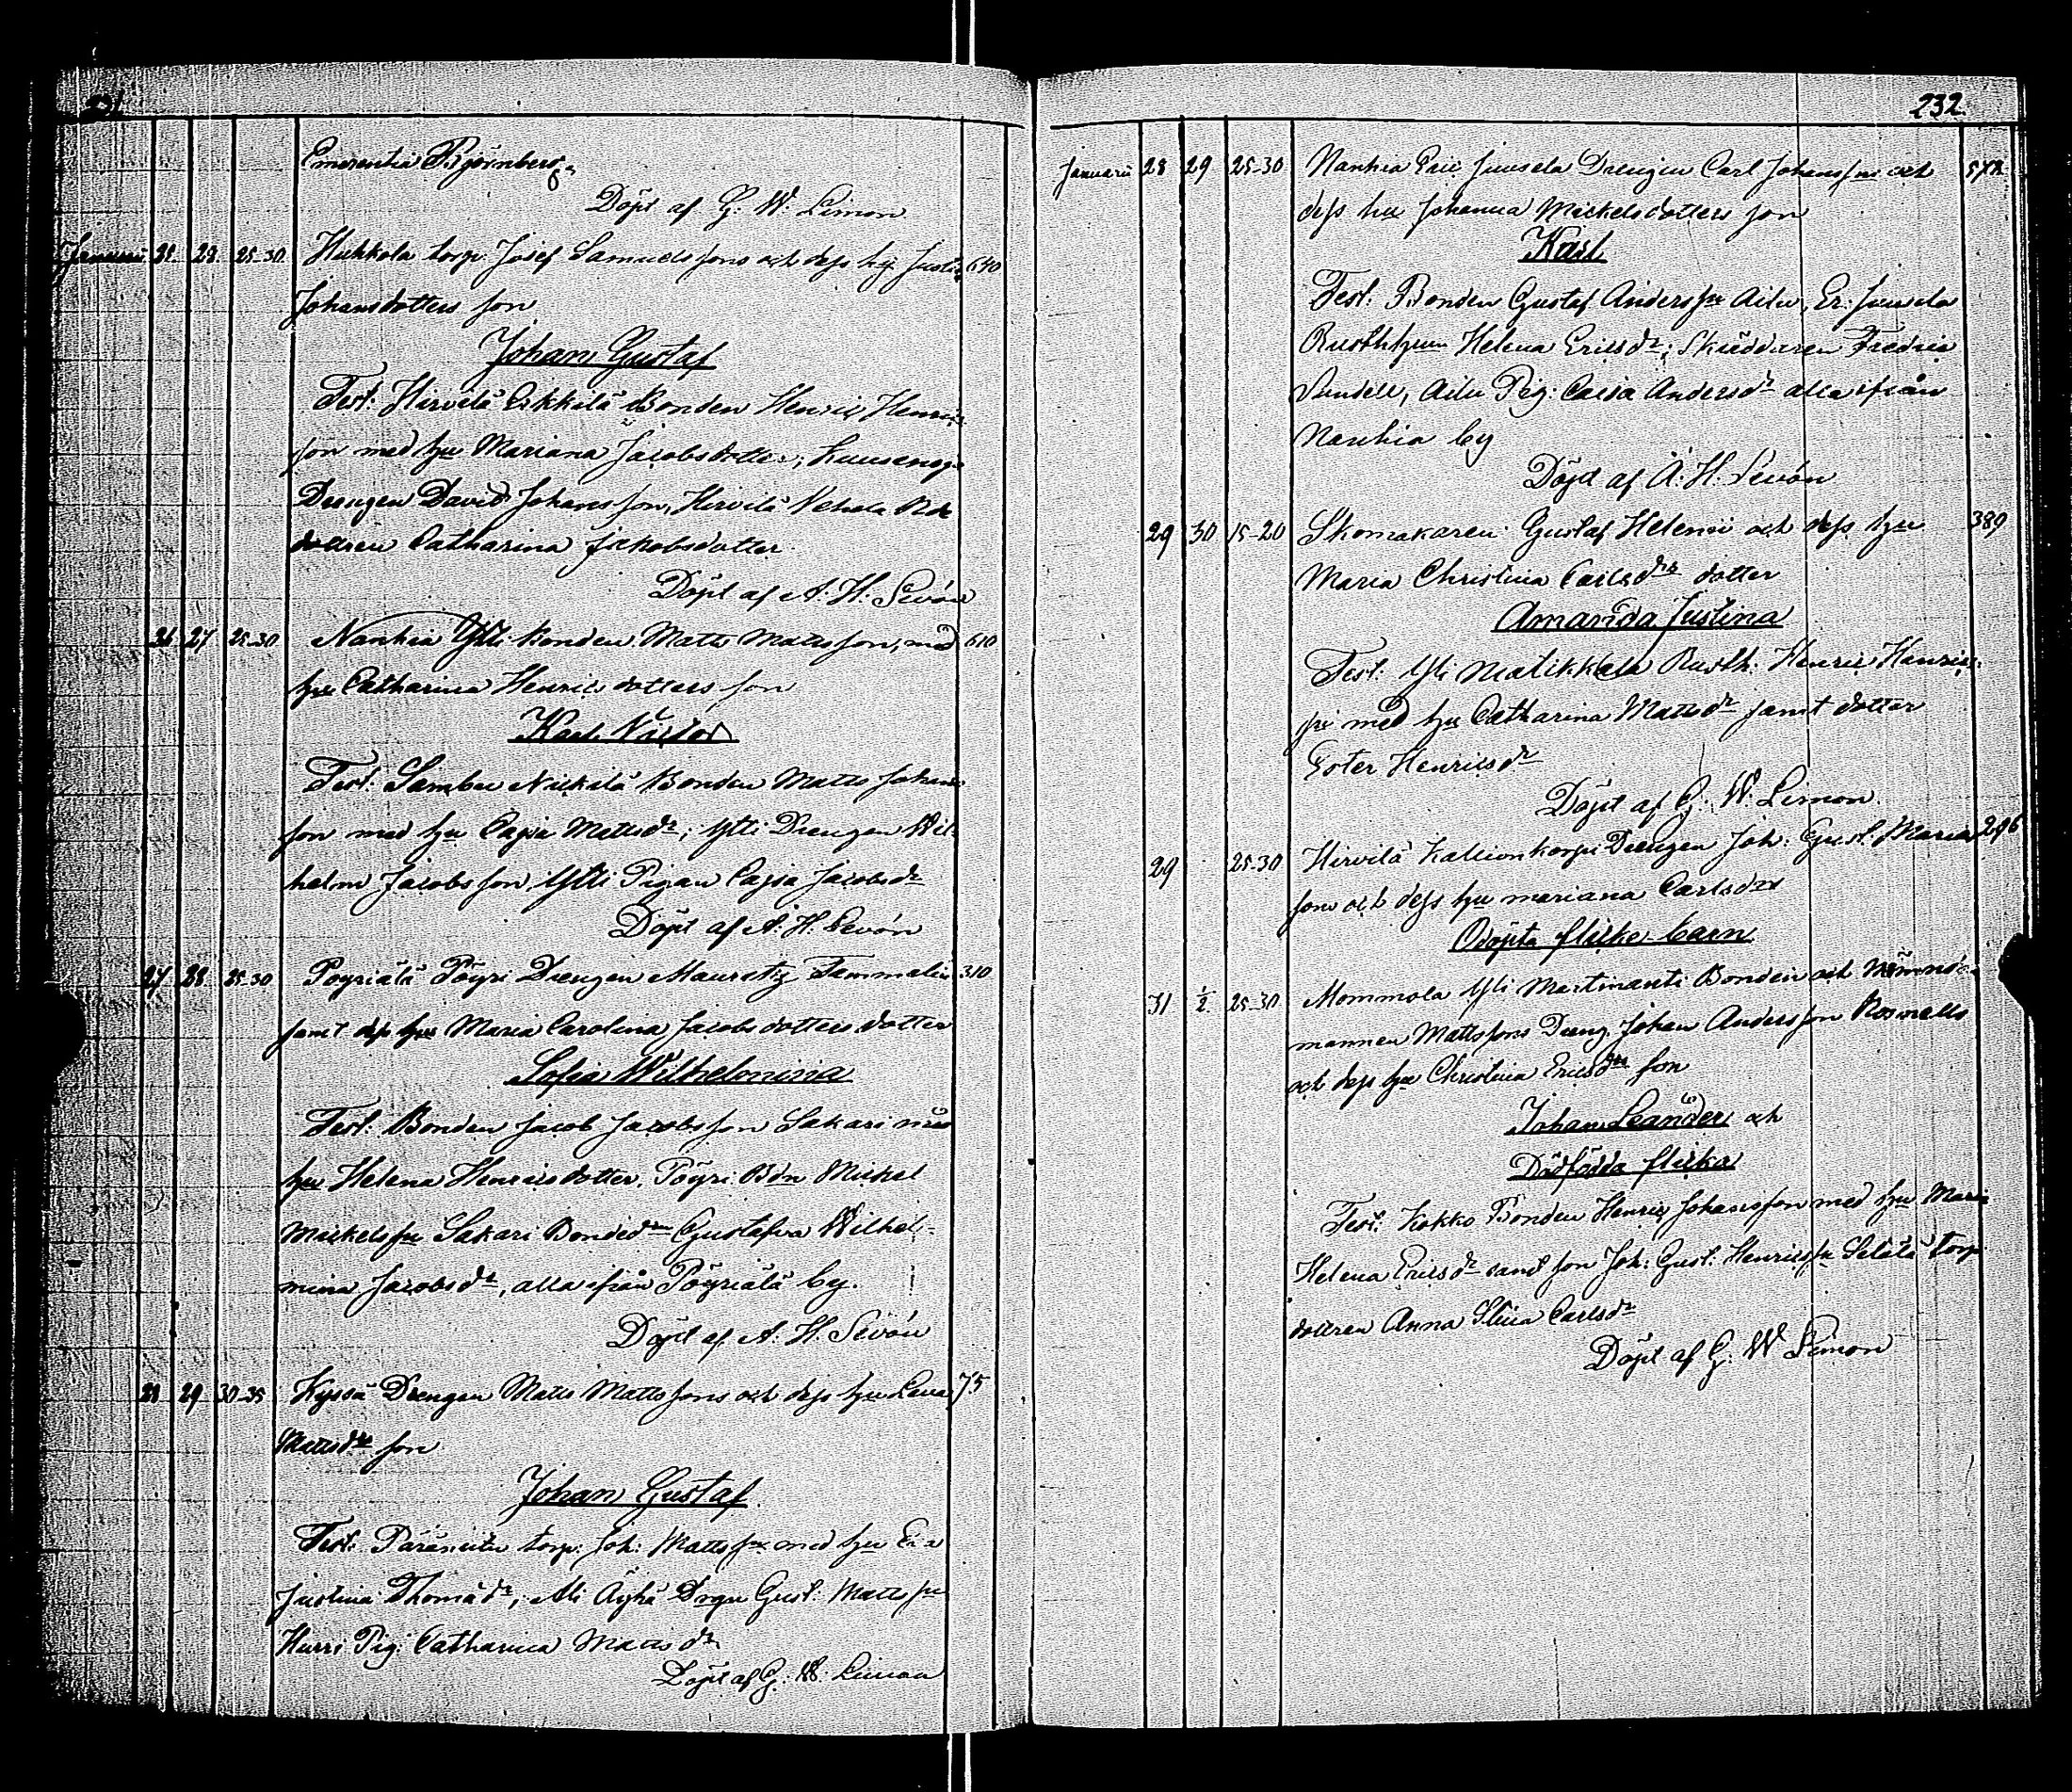 231
Emerentia Björnberg
Döpt af G. W. Limon
Januari 28 28 25-30 Huhkola torp. Josef Samuelssons och dess hu Justina 640
Johansdotters son
Johan Gustaf
Test: Hirvelä Erkkilä Bonden Henric Henrics
son med hu Mariana Jacobsdotter;
Drengen David Johansson, Hirvilä
dottren Catharina Jakobsdotter
Döpt af A. H. Sevón
26 27 25-30 Nankia Ylli Bonden Matts Mattsson, med 610
hu Catharina Henricsdotters son
Karl Victor
Test: Sambu Nickilä Bonden Matts Johans
son med hu Cajsa Mattsdr; Ylli Drengen Wil-
helm Jacobsson, Ylli Pigan Cajsa Jacobsdr
Döpt af A. H. Sevón
27 28 25-30 Pöyriälä Pöyri Drengen Mauritz Tammelin 310
samt dess hu Maria Carolina Jacobsdotters dotter
Sofia Wilhelmina
Test: Bonden Jacob Jacobsson Sakari med
hu Helena Henricsdotter, Pöyri Bdn Mickel
Mickelssn Sakari Bonded Gustafva Wilhel-
mina Jacobsdr, alla ifrån Pöyriälä by.
Döpt af A. H. Sevón
28 29 30-35 Hyssä Drengen Matts Mattssons och dess hu Lena 75
Mattsdrs son
Johan Gustaf
Test: torp. Joh: Mattssn med hu
Justina Thomädr, Äijhä Drgn Gust. Mattssn
Hurri Pig. Catharina Mattsdr
Döpt af G. W. Limon
232
Januarii 28 29 25-30 Nankia Eric Juusela Drengen Carl Johanssons och 578
dess hu Johanna Mickelsdotters son
Karl
Test: Bonden Gustaf Anderssn Aitu, Er. Juusela
Rusthhun Helena Ericsdr; Skräddaren Fredric
Sundell, Aitu Pig. Caisa Andersdr alla ifrån
Nankia by
Döpt af A. H. Sevón
29 30 15-20 Skomakaren Gustaf Heleni och dess hu 389
Maria Christina Carlsdrs dotter
Amanda Justina
Test: Yli Matikkala Rusth. Henric Henrics-
sn med hu Catharina Mattsdr samt dotter
Ester Henricsdr
Döpt af G. W. Limon
29 25-30 Hirvilä Kallionkorpi Drengen Joh: Gust. 296
sons och dess hu Mariana Carlsdrs
Odöpta flicke-barn
31 1/2 25-30 Mommola Yli Martinanti Bonden och Nämnde-
mannen Mattssons Dreng Johan Andersson Rosnells
och dess hu Christina Ericsdrs son
Johan Leander och
Dödfödda flicka
Test: Kokko Bonden Henric Johansson med hu Maria
Helena Ericsdr samt son Joh: Gust. Henricssn torp.
dottren Anna Stina Carlsdr
Döpt af G. W Limon